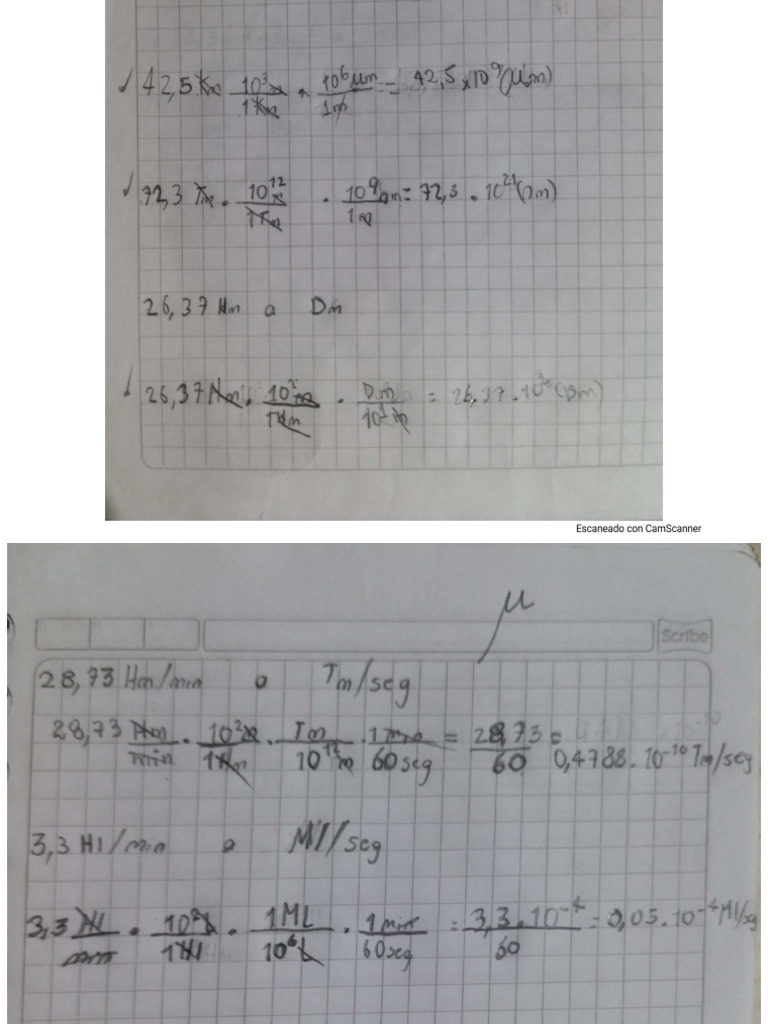 ✓ 42,5 Km 10³m/1Km · 10⁶ μm/1m = 42,5 x 10⁹ (μm)
✓ 72,3 Tm · 10¹² m/1Tm · 10⁹ nm/1m = 72,3 · 10²¹ (nm)
26,37 Hm a Dm
26,37 Hm · 10² m/1Hm · Dm/10¹ m = 26,37 · (Dm)
Escaneado con CamScanner
μ
Scribe
28,73 Hm/min a Tm/seg
28,73 Hm/min · 10² m/1Hm · Tm/10¹² m · 1 min/60 seg = 28,73/60 = 0,4788 · 10⁻¹⁰ Tm/seg
3,3 Hl/min a Ml/seg
3,3 Hl/min · 10² L/1Hl · 1ML/10⁶ L · 1 min/60 seg = 3,3 · 10⁻⁴/60 = 0,05 · 10⁻⁴ Ml/sg